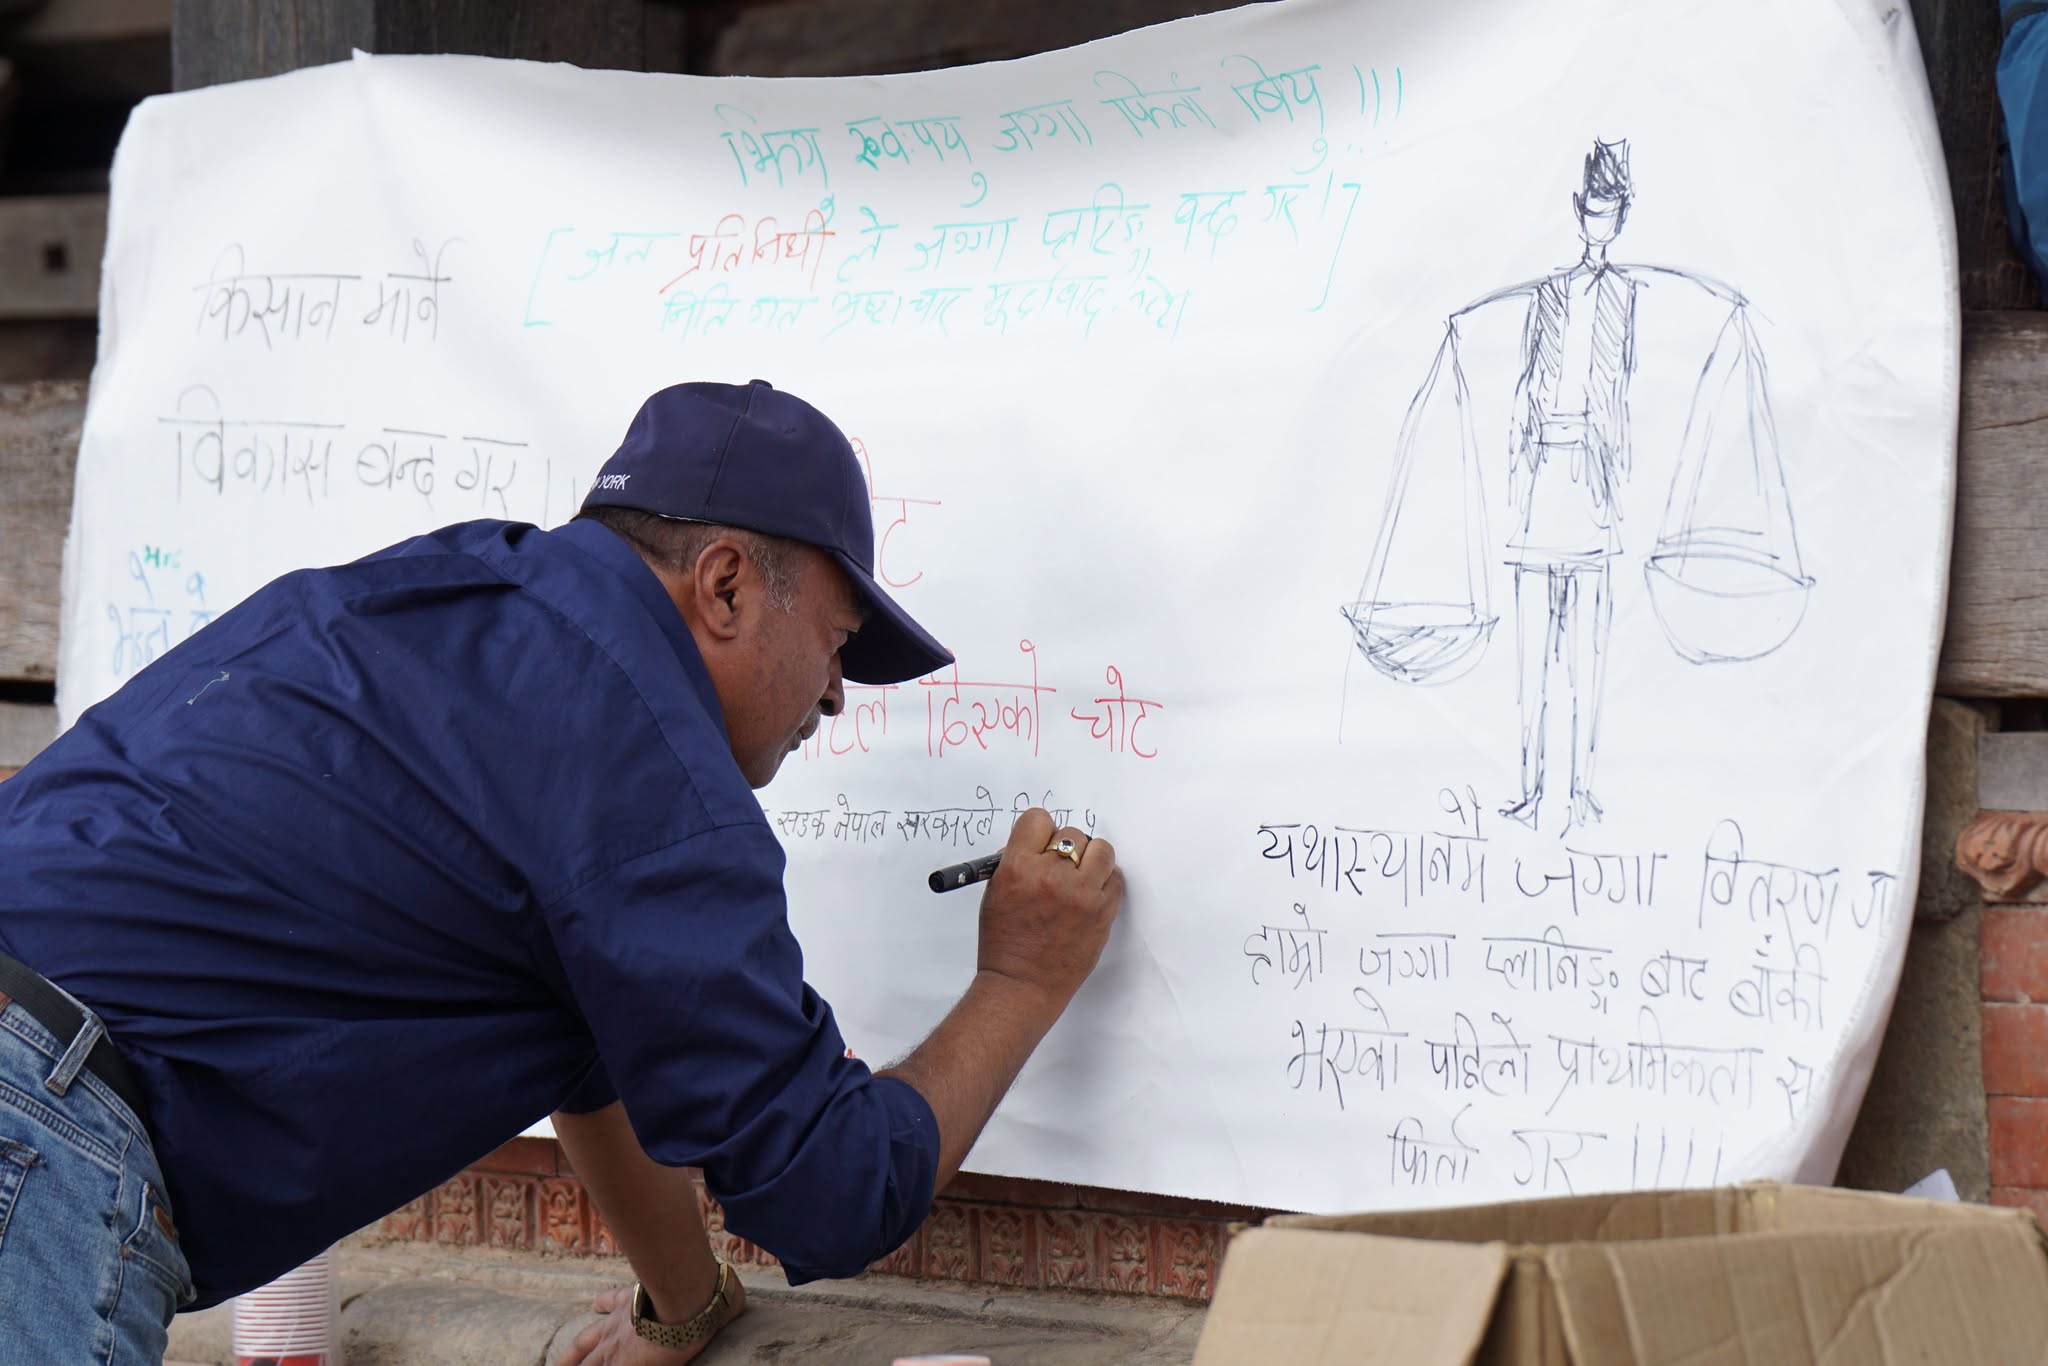 जग्गा फिर्ता बियु !!!
जन प्रतिनिधी ले जग्गा प्लटिङ्ग बन्द गर !
निति गत भ्रष्टाचार मूर्दावाद
किसान मार्ने
विकास बन्द गर !
YORK
ोट
दिएको चोट
सडक नेपाल सरकारले
यथास्थानमै जग्गा वितरण ज
हाम्रो जग्गा प्लानिङ्ग बाट बाँकी
भएको पहिलो प्राथमिकता स
फिर्ता गर !!!!